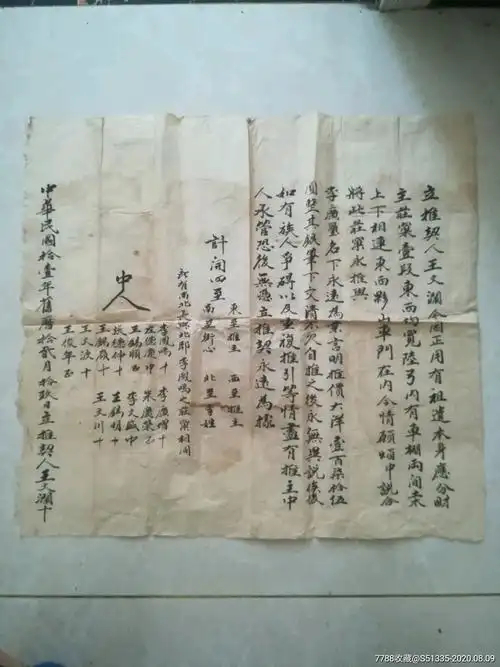 立推契人王文瀾今因正用有祖遺本身應分財
主莊窠壹段東西均寬陸弓內有車棚兩間東
上下相連東面夥山車門在內今情願煩中說合
將此莊窠永推與
李廣量名下永遠為業言明推價大洋壹百柒拾伍
圓整其錢筆下交清不欠自推之後永無異說倘後
如有族人爭碍以及重復推引等情盡有推主中
人承管恐後無憑立推契永遠為據
計開四至
東至推主 西至推主
南至街心 北至李姓
李鳳鳴之莊窠相間
中人
李鳳鳴十 李廣增十
王錫順 李文盛中
王錫嶺十 王錫明十
王文波十 王文川十
王俊年
中華民國拾壹年舊曆拾貳月拾玖日立推契人王文瀾十
7788收藏@S51335-2020.08.09